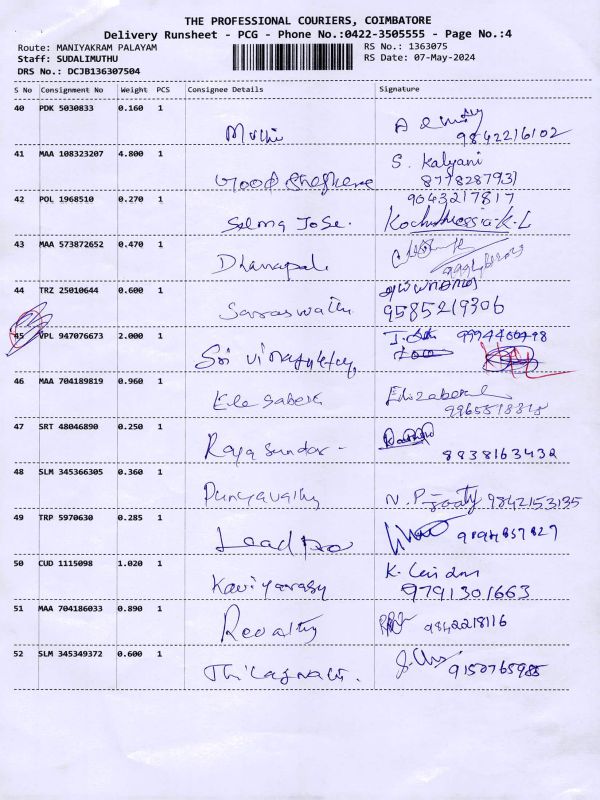 THE PROFESSIONAL COURIERS, COIMBATORE
Delivery Runsheet - PCG - Phone No.:0422-3505555 - Page No.:4
Route: MANIYAKRAM PALAYAM
RS No.: 1363075
Staff: SUDALIMUTHU
RS Date: 07-May-2024
DRS No.: DCJB136307504
S No Consignment No Weight PCS Consignee Details Signature
40 PDK 5030833 0.160 1
Muthu
9842216102
41 MAA 108323207 4.800 1
S. Kalyani
Good Shepherd 8778287931
42 POL 1968510 0.270 1 9043217817
Selma Jose. Kochuthressia-K.L
43 MAA 573872652 0.470 1
Dhanapal
44 TRZ 25010644 0.600 1
Saraswathi 9585219306
45 VPL 947076673 2.000 1
Sri Vinayaka
46 MAA 704189819 0.960 1
Elesabeth Elizabeth
47 SRT 48046890 0.250 1
Rajasundar - 8838163432
48 SLM 345366305 0.360 1
Punyavathy N. P. 9842153135
49 TRP 5970630 0.285 1
Lead pro 9894857827
50 CUD 1115098 1.020 1
Kaviyarasy 9791301663
51 MAA 704186033 0.890 1
Revathy 9842218116
52 SLM 345349372 0.600 1
Thilagavathi. 9150765985